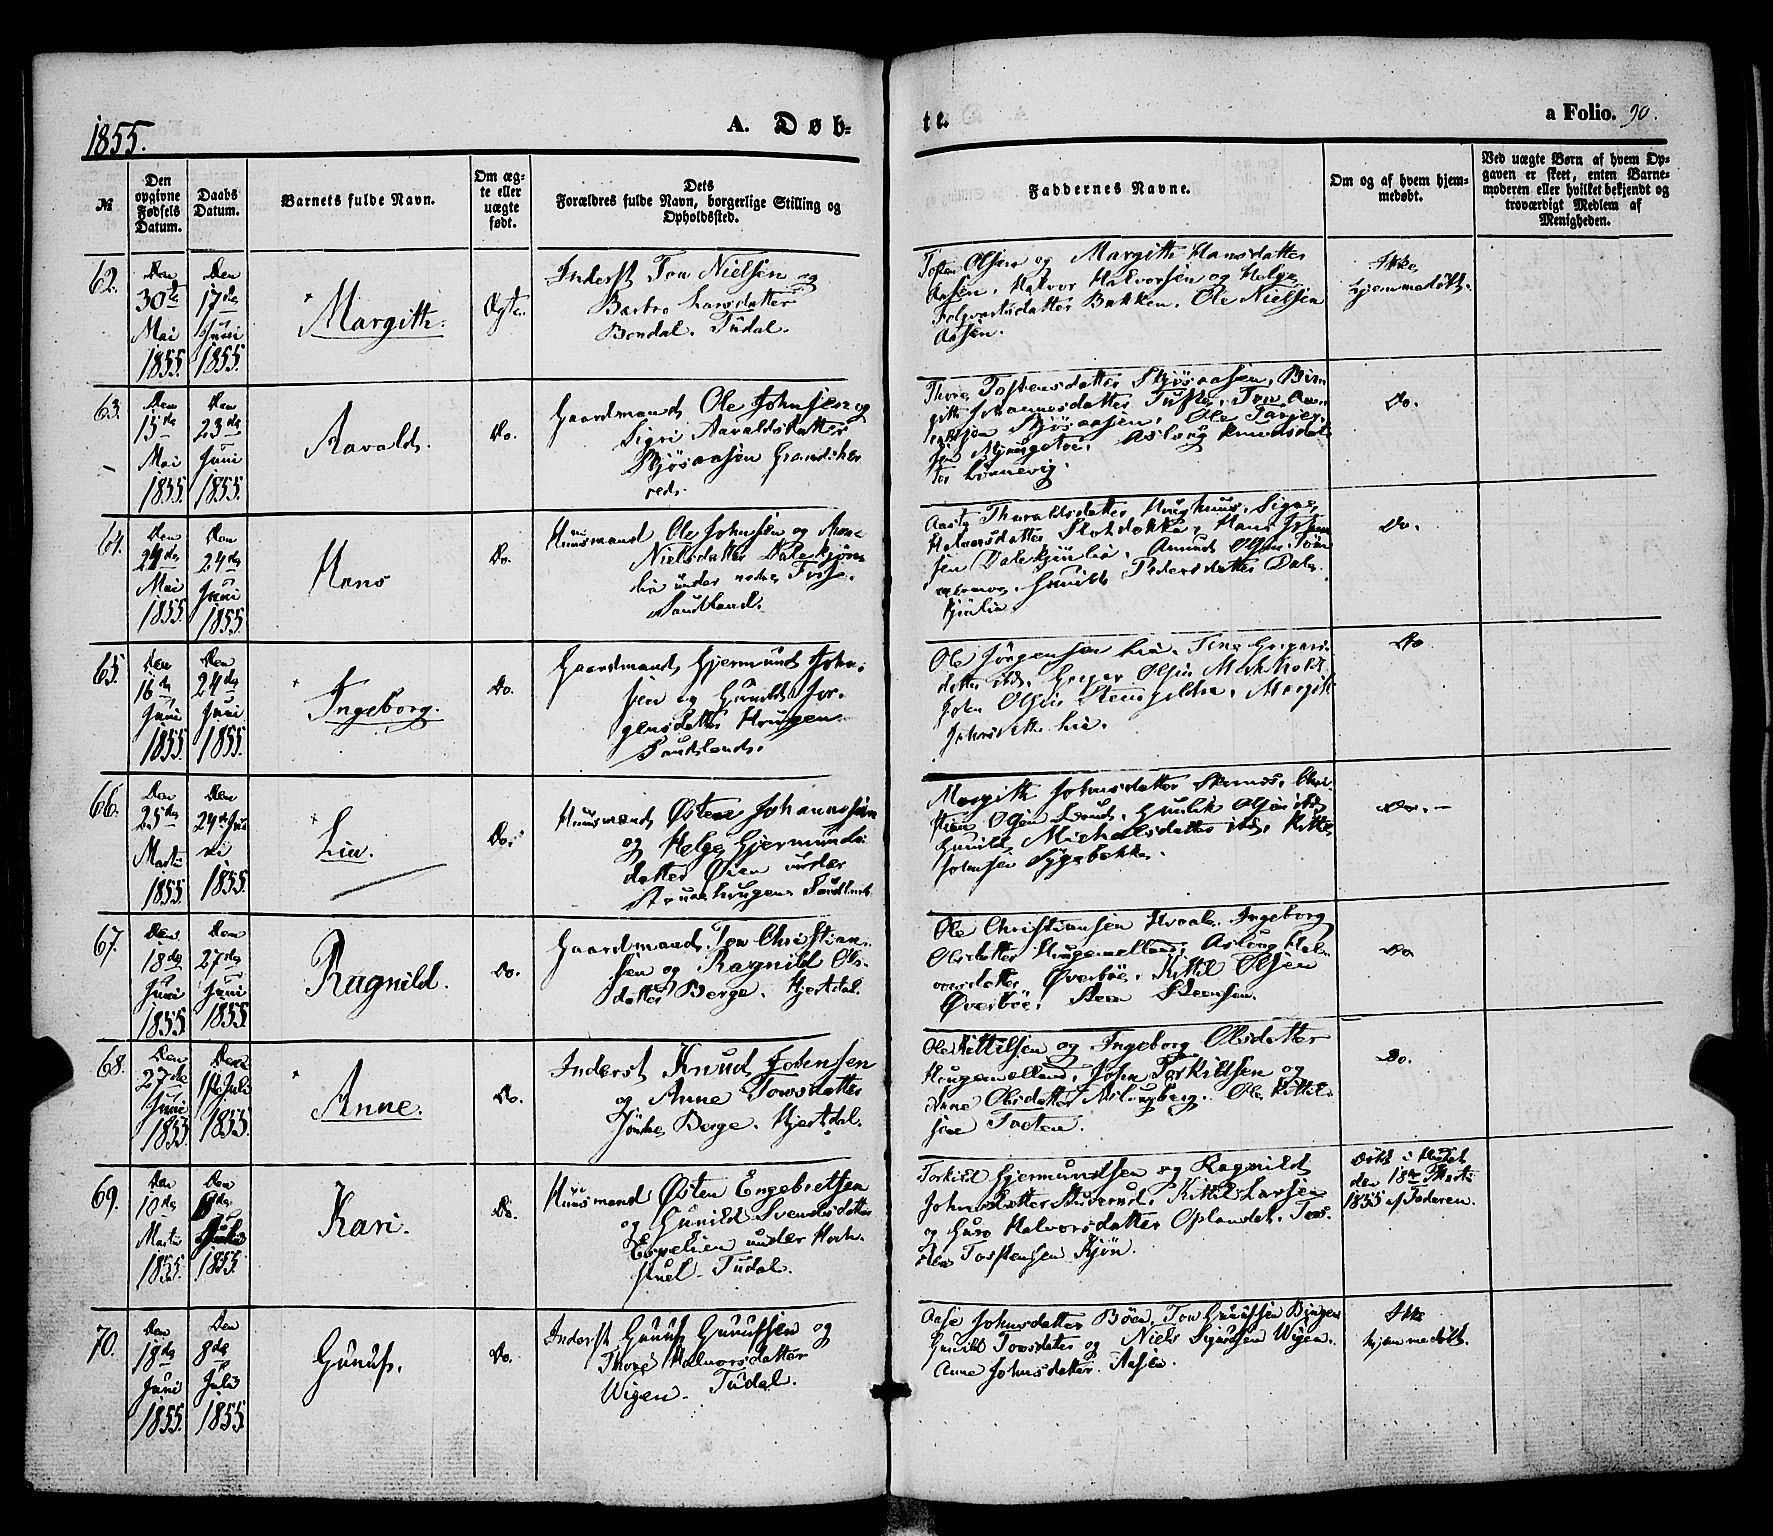 1855.
A. Døb-
te.
a Folio. 90.
№
Den opgivne Fødsels Datum.
Daabs Datum.
Barnets fulde Navn.
Om ægte eller uægte født.
Dets Forældres fulde Navn, borgerlige Stilling og Opholdssted.
Faddernes Navne.
Om og af hvem hjemmedøbt.
Ved uægte Børn af hvem Opgaven er skeet, enten Barnemoderen eller hvilket bekjendt og troværdigt Medlem af Menigheden.
62.
Den 30te Mai 1855.
Den 17de Juni 1855.
Margith.
Ægte.
Inderst Tov Nielsen og
Barbro Larsdatter
Bondal. Tudal.
Tosten Olsen og Margith Hansdatter
Aasen. Halvor Halvorsen og Helge
Folqvartsdatter Bakken. Ole Nielsen
Aasen.
Ikke
hjemmedøbt.
63.
Den 15de Mai 1855.
Den 23de Juni 1855.
Aavald.
Do.
Gaardmand Ole Johnsen og
Sigri Aavaldsdatter
Skjøsaasen Grandsher
red.
Thore Tostensdatter Skjøsaasen. Bir
gith Johannesdatter Tufte. Tov
Skjøsaasen. Ole
Aslaug Knudsdat
ter
Do.
64.
Den 24de Mai 1855.
Den 24de Juni 1855.
Hans
Do.
Huusmand Ole Johnsen og
Nielsdatter Dalekjøn
lia under
Sandland.
Aaste Tharaldsdatter Haughuus.
Halvorsdatter Slotdokka. Hans John
sen Dalekjønlia. Amund Olsen
Gunild Pedersdatter Dale
kjønlia.
Do.
65.
Den 16de Juni 1855.
Den 24de Juni 1855.
Ingeborg.
Do.
Gaardmand Gjermund John-
sen og Gunild Jør-
gensdatter Haugen
Sandland.
Ole Jørgensen Lia. Tine Gregars
datter ibd. Gregar Olsen
John Olsen Margit
Johnsdatter Lia.
Do
66.
Den 25de Marti 1855.
Den 24de Juni 1855.
Liv.
Do.
Huusmand Østen Johannesen
og Helge Gjermunds
datter Øien under
Sandland
Margith Johnsdatter Chri-
stien Olsen Lund. Gunlik Olsen ibd.
Gunild Michelsdatter ibd. Kittel
Johnsen
Do.
67.
Den 18de Juni 1855.
Den 27de Juni 1855.
Ragnild.
Do.
Gaardmand. Tov Christian-
sen og Ragnild Ols-
datter Berge. Hjertdal.
Ole Christiansen Hvaale. Ingeborg
Olsdatter Haugemælland. Aslaug Hal-
vorsdatter Øverbøe. Kittil Olsen
Øverbøe. Steen Steensen.
Do
68.
Den 27de Juni 1855.
Den 1ste Juli 1855.
Anne.
Do.
Inderst Knud Johnsen
og Anne Tovsdatter
Berge. Hjertdal.
Ole Kittilsen og Ingeborg Olsdatter
Haugemælland. John Torkildsen og
Anne Olsdatter Aslaugberg. Ole Kittil-
sen Tveten.
Do.
69.
Den 10de Marti 1855.
Den Juli 1855
Kari.
Do.
Huusmand Østen Engebretsen
og Gunild Svendsdatter
Espelien under Hov-
stuel. Tudal.
Torkild Gjermundsen og Ragnild
Johnsdatter Kittil Larsen
og Guro Halvorsdatter Oplandet.
Tostensen Kjøn.
Døbt i Huset
den 18de Marti
1855 af Faderen.
70.
Den 18de Juni 1855.
Den 8de Juli 1855.
Gunuf.
Do.
Inderst Gunuf Gunufsen og
Thore Halvorsdatter
Wigen. Tudal.
Aase Johnsdatter Bøen. Tov Gunufsen Bingen
Gunild Tovsdatter og Niels Sigurdsen Wigen.
Anne Johnsdatter Aasen.
Ikke
hjemmedøbt.